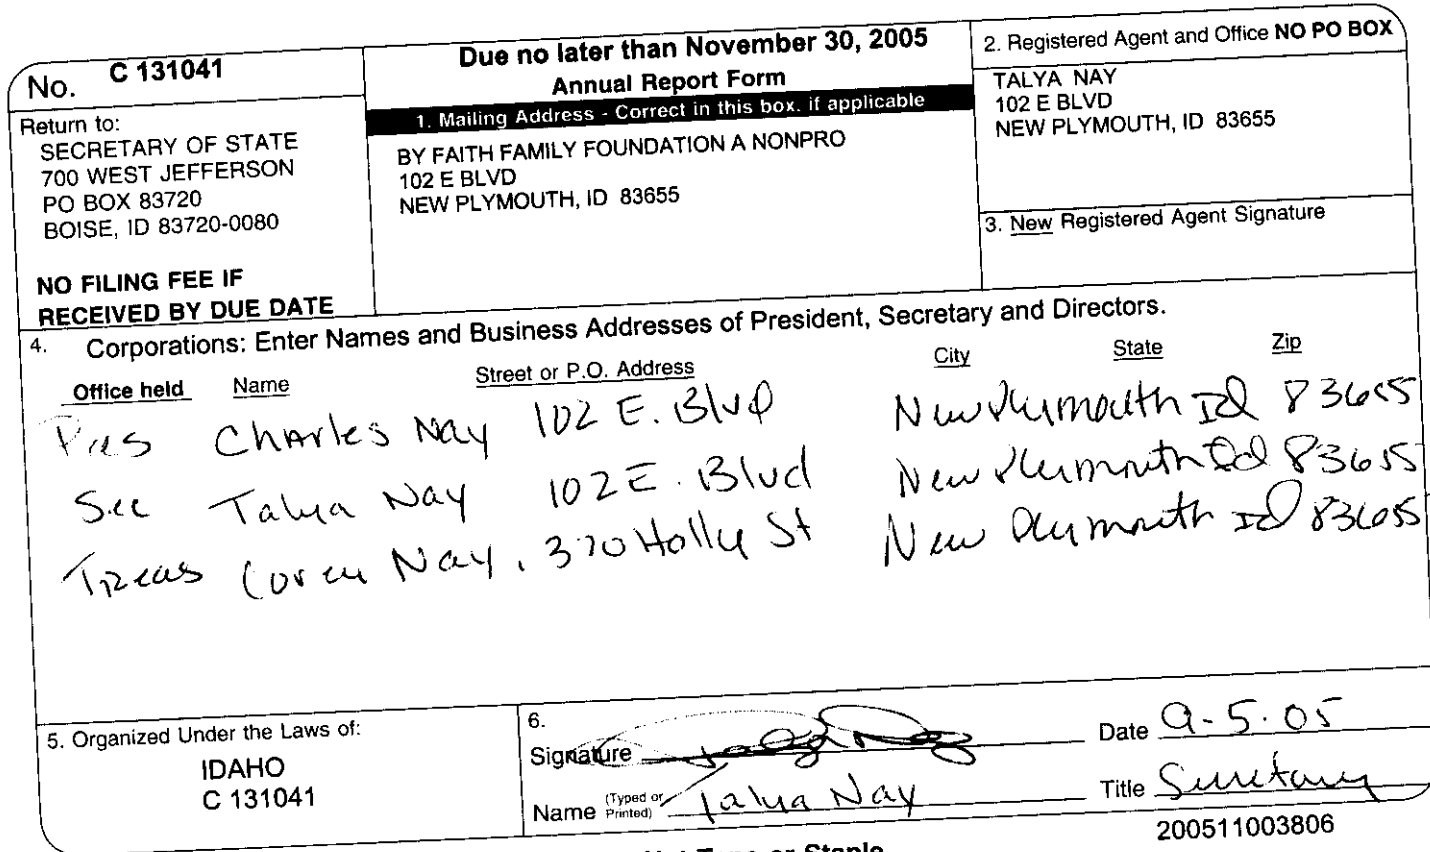 No. C 131041
Return to:
SECRETARY OF STATE
700 WEST JEFFERSON
PO BOX 83720
BOISE, ID 83720-0080
NO FILING FEE IF
RECEIVED BY DUE DATE
Due no later than November 30, 2005
Annual Report Form
1. Mailing Address - Correct in this box. if applicable
BY FAITH FAMILY FOUNDATION A NONPRO
102 E BLVD
NEW PLYMOUTH, ID 83655
2. Registered Agent and Office NO PO BOX
TALYA NAY
102 E BLVD
NEW PLYMOUTH, ID 83655
3. New Registered Agent Signature
4. Corporations: Enter Names and Business Addresses of President, Secretary and Directors.
Office held Name Street or P.O. Address City State Zip
Pres Charles Nay 102 E. Blvd New Plymouth Id 83655
Sec Talya Nay 102 E. Blvd New Plymouth Id 83655
Treas Nay, 370 Holly St New Plymouth Id 83655
5. Organized Under the Laws of:
IDAHO
C 131041
6.
Signature Date 9-5-05
Name (Typed or Printed) Talya Nay Title Secretary
200511003806
or Staple